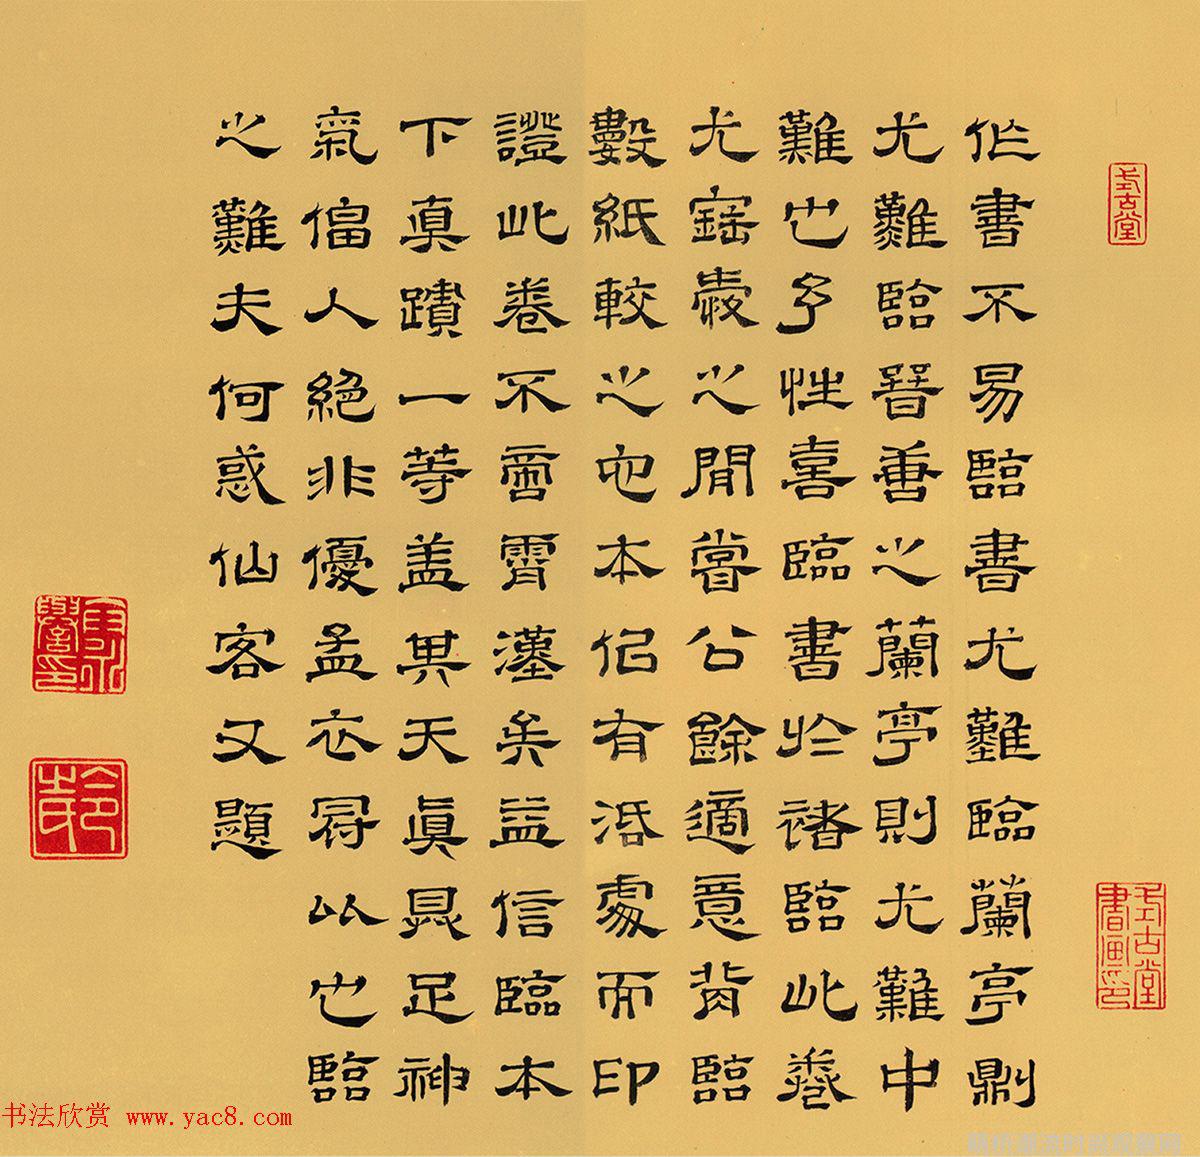 作書不易臨書尤難臨蘭亭則
尤難臨晉善之蘭亭則尤難中
難也予性喜臨書於褚臨此卷
尤寶愛之閒嘗公餘適意背臨
數紙較之他本佀有活處而印
證此卷不啻霄漢矣益信臨本
下真蹟一等蓋異天真具足神
氣偪人絕非優孟衣冠以也臨
之難夫何惑仙客又題
式古堂
式古堂書畫印
书法欣赏 www.yac8.com